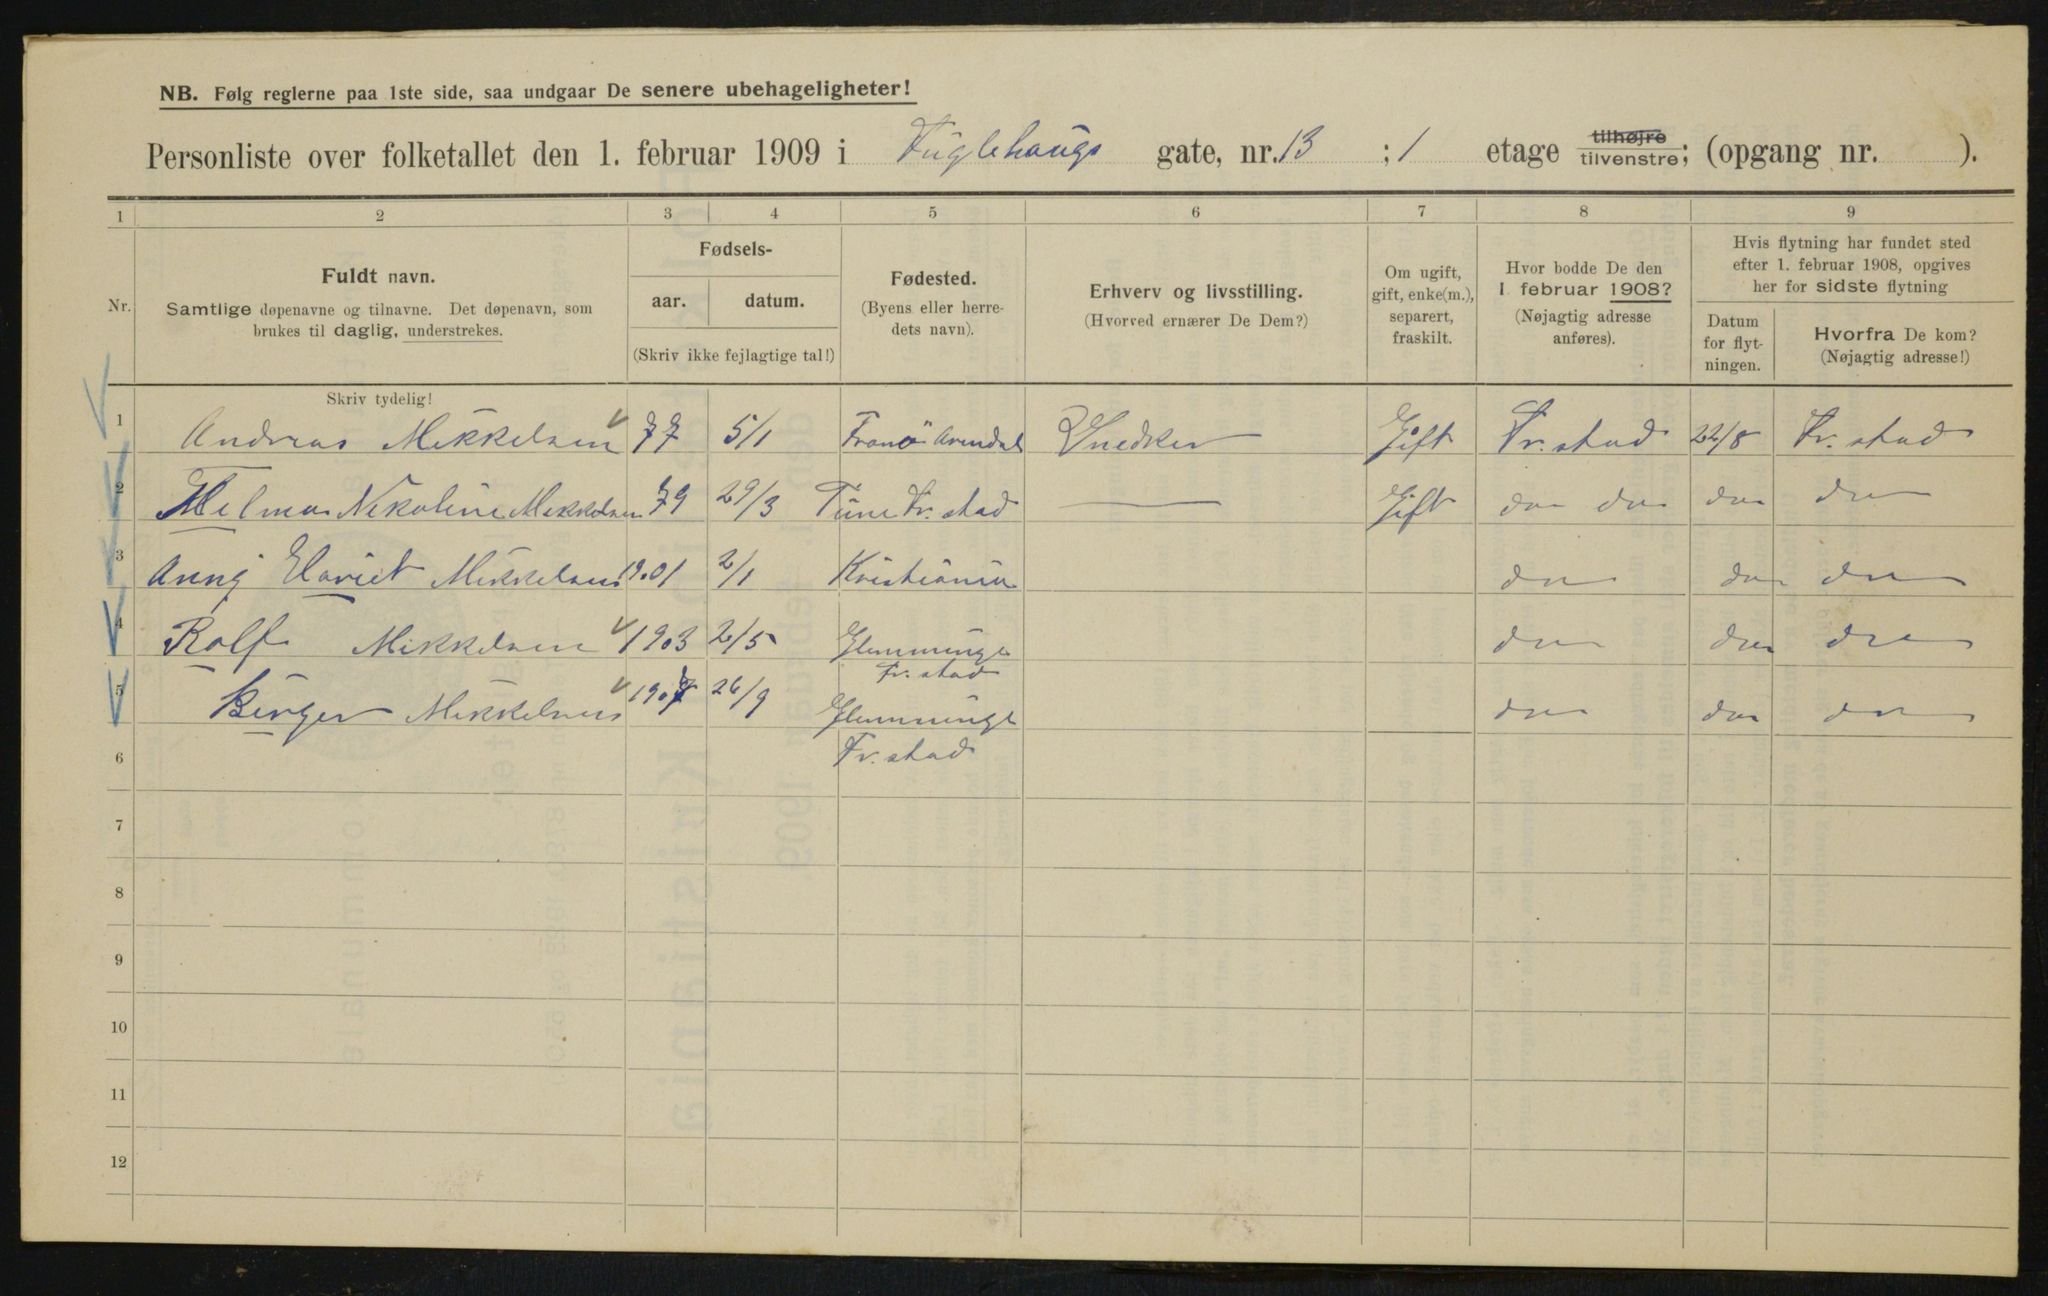 NB. Følg reglerne paa 1ste side, saa undgaar De senere ubehageligheter!
Personliste over folketallet den 1. februar 1909 i Fuglehaugs gate, nr. 13 ; 1 etage tilhøjre tilvenstre; (opgang nr. ).
1 2 3 4 5 6 7 8 9
Nr.
Fuldt navn.
Samtlige døpenavne og tilnavne. Det døpenavn, som
brukes til daglig, understrekes.
Fødsels-
aar. datum.
(Skriv ikke fejlagtige tal!)
Fødested.
(Byens eller herre-
dets navn).
Erhverv og livsstilling.
(Hvorved ernærer De Dem?)
Om ugift,
gift, enke(m.),
separert,
fraskilt.
Hvor bodde De den
1. februar 1908?
(Nøjagtig adresse
anføres).
Hvis flytning har fundet sted
efter 1. februar 1908, opgives
her for sidste flytning
Datum
for flyt-
ningen.
Hvorfra De kom?
(Nøjagtig adresse!)
Skriv tydelig!
1 Andreas Mikkelsen 77 5/1 Tromö Arendal Snedker Gift Fr. stad 22/8 Fr. stad
2 Helma Nikoline Mikkelsen 79 29/3 Tune Fr. stad — Gift do do do do
3 Anny Hariet Mikkelsen 1901 2/1 Kristiania do do do
4 Rolf Mikkelsen 1903 2/5 Glemminge do do do
Fr. stad
5 Birger Mikkelsen 1907 26/9 Glemminge do do do
6 Fr. stad
7
8
9
10
11
12